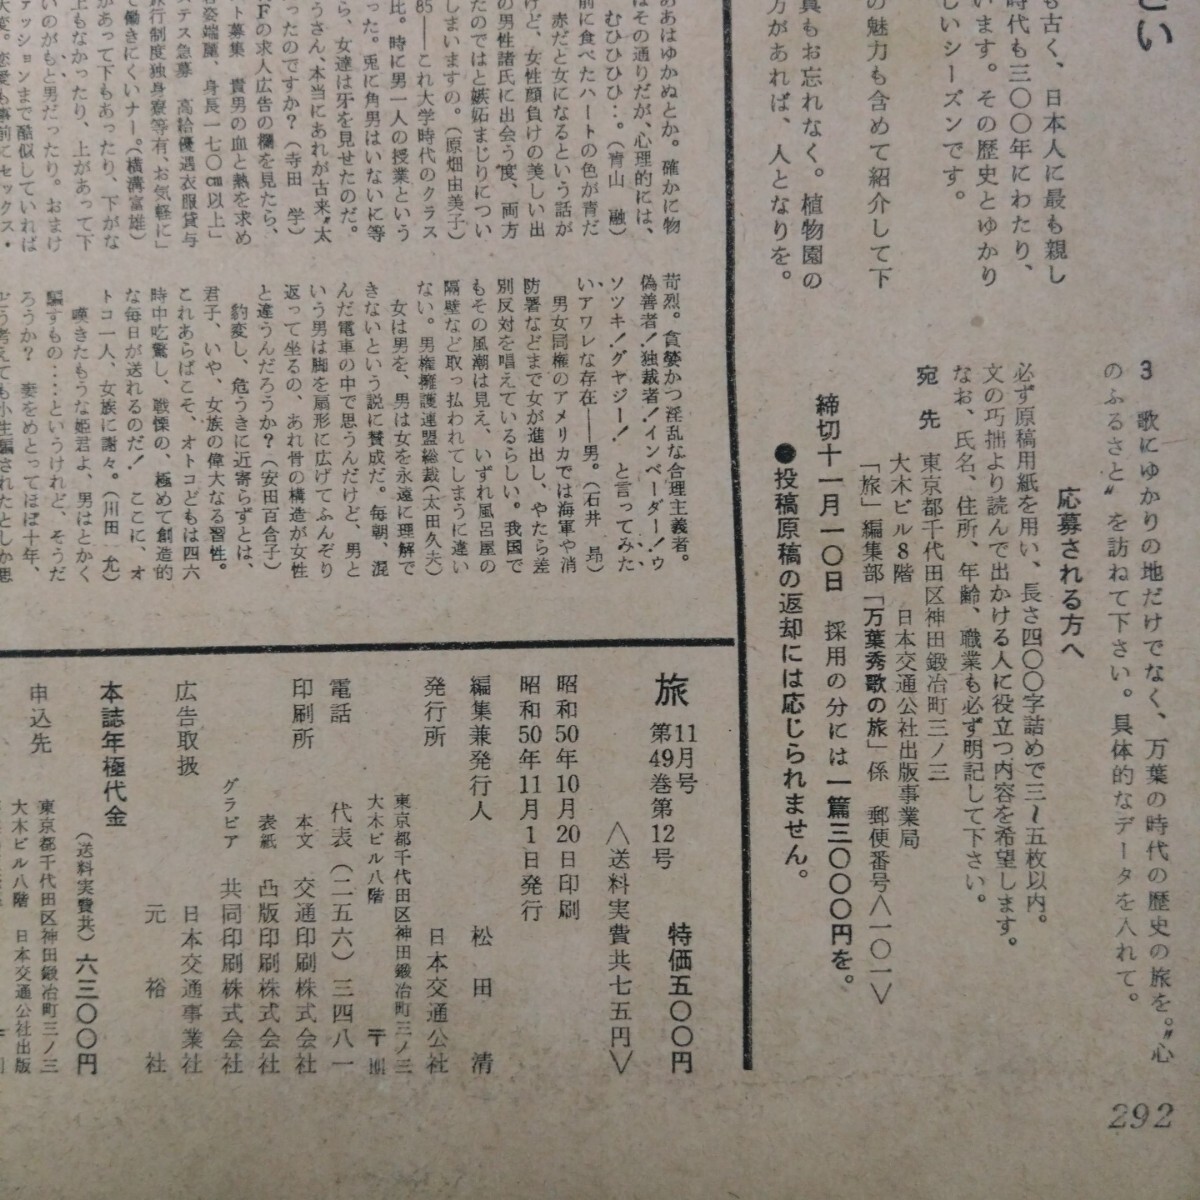 さい
も古く、日本人に最も親し
時代も三〇〇年にわたり、
います。その歴史とゆかり
しいシーズンです。
の魅力も含めて紹介して下
真もお忘れなく。植物園の
方があれば、人となりを。
3　歌にゆかりの地だけでなく、万葉の時代の歴史の旅を。〝心
のふるさと〟を訪ねて下さい。具体的なデータを入れて。
応募される方へ
必ず原稿用紙を用い、長さ四〇〇字詰めで三〜五枚以内。
文の巧拙より読んで出かける人に役立つ内容を希望します。
なお、氏名、住所、年齢、職業も必ず明記して下さい。
宛先　東京都千代田区神田鍛冶町三ノ三
大木ビル8階　日本交通公社出版事業局
「旅」編集部「万葉秀歌の旅」係　郵便番号〈一〇一〉
締切十一月一〇日　採用の分には一篇三〇〇〇円を。
●投稿原稿の返却には応じられません。
あはゆかぬとか。確かに物
はその通りだが、心理的には、
むひひひひ‥。（青山　融）
前に食べたハートの色が青だ
赤だと女になるという話が
けど、女性顔負けの美しい出
の男性諸氏に出会う度、両方
たのではと嫉妬まじりについ
しまいますの。（原畑由美子）
85――これ大学時代のクラス
比。時に男一人の授業という
った。兎に角男はいないに等
ら、女達は牙を見せたのだ。
うさん、本当にあれが古来〝太
ったのですか？（寺田　学）
Fの求人広告の欄を見たら、
ト募集　貴男の血と熱を求め
容姿端麗、身長一七〇cm以上」
ステス急募　高給優遇衣服貸与
旅行制度独身寮等有、お気軽に」
で働きにくいナー。（横溝富雄）
があって下もあったり、下がな
上もなかったり、上があって下
いのがもと男だったり。おまけ
ァッションまで酷似していれば
大変。恋愛も事前にセックス・
苛烈。貪婪かつ淫乱な合理主義者。
偽善者！独裁者！インベーダー！ウ
ソツキ！グヤジー！　と言ってみた
い、アワレな存在――男。（石井　昻）
男女同権のアメリカでは海軍や消
防署などまで女が進出し、やたら差
別反対を唱えているらしい。我国で
もその風潮は見え、いずれ風呂屋の
隔壁など取っ払われてしまうに違い
ない。男権擁護連盟総裁（太田久夫）
女は男を、男は女を永遠に理解で
きないという説に賛成だ。毎朝、混
んだ電車の中で思うんだけど、男と
いう男は脚を扇形に広げてふんぞり
返って坐るの、あれ骨の構造が女性
と違うんだろうか？（安田百合子）
豹変し、危うきに近寄らずとは、
君子、いや、女族の偉大なる習性。
これあらばこそ、オトコどもは四六
時中吃驚し、戦慄の、極めて創造的
な毎日が送れるのだ！　ここに、オ
トコ一人、女族に謝々。（川田　允）
嘆きたもうな姫君よ、男はとかく
騙すもの‥‥というけれど、そうだ
ろうか？　妻をめとってほぼ十年、
どう考えても小生騙されたとしか思
旅　11月号　第49巻第12号　特価五〇〇円
〈送料実費共七五円〉
昭和50年10月20日印刷
昭和50年11月1日発行
編集兼発行人　松田　清
発行所　日本交通公社
東京都千代田区神田鍛冶町三ノ三
大木ビル八階　〒
電話　代表（二五六）三四八一
印刷所　本文　交通印刷株式会社
表紙　凸版印刷株式会社
グラビア　共同印刷株式会社
広告取扱　日本交通事業社
元裕社
本誌年極代金
（送料実費共）六三〇〇円
申込先　東京都千代田区神田鍛冶町三ノ三
大木ビル八階　日本交通公社出版
292